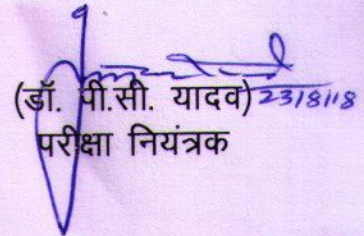 (डॉ. पी.सी. यादव) 23/8/18
परीक्षा नियंत्रक